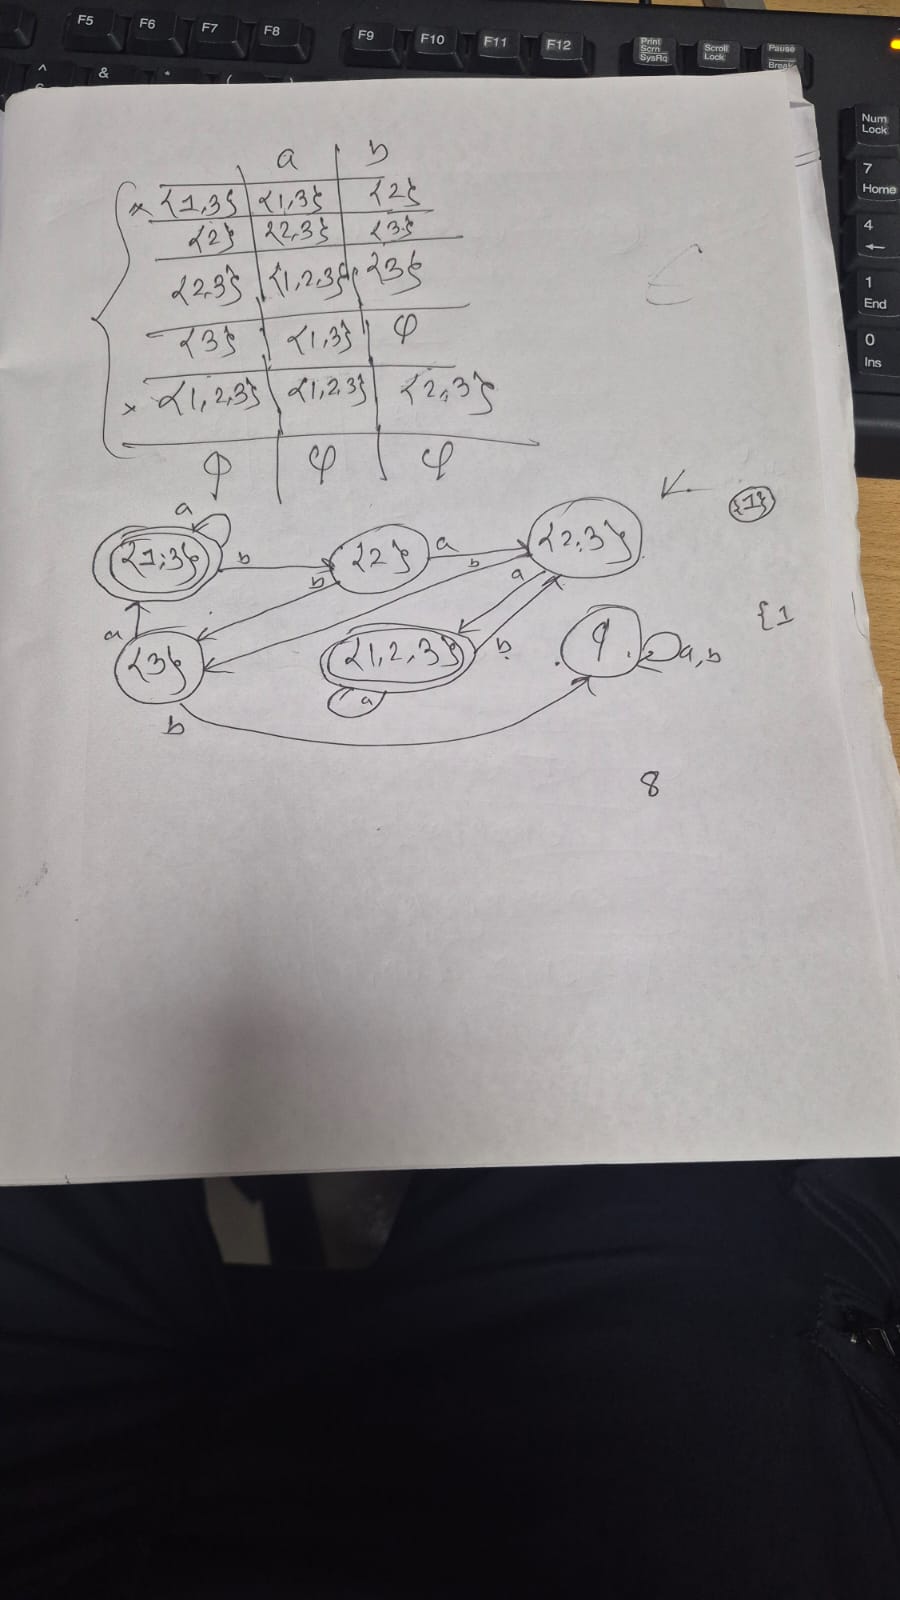 F5 F6 F7 F8 F9 F10 F11 F12 Print Scrn SysRq Scroll Lock Pause Break
^ & * ( )
Num Lock
7 Home
4 ←
1 End
0 Ins
a b
× {1,3} {1,3} {2}
{2} {2,3} {3}
{2,3} {1,2,3} {3}
{3} {1,3} φ
× {1,2,3} {1,2,3} {2,3}
φ φ φ
{1}
a
{1,3} b {2} a {2,3}
b b a
{1
a {3} {1,2,3} b φ a,b
a
b
8